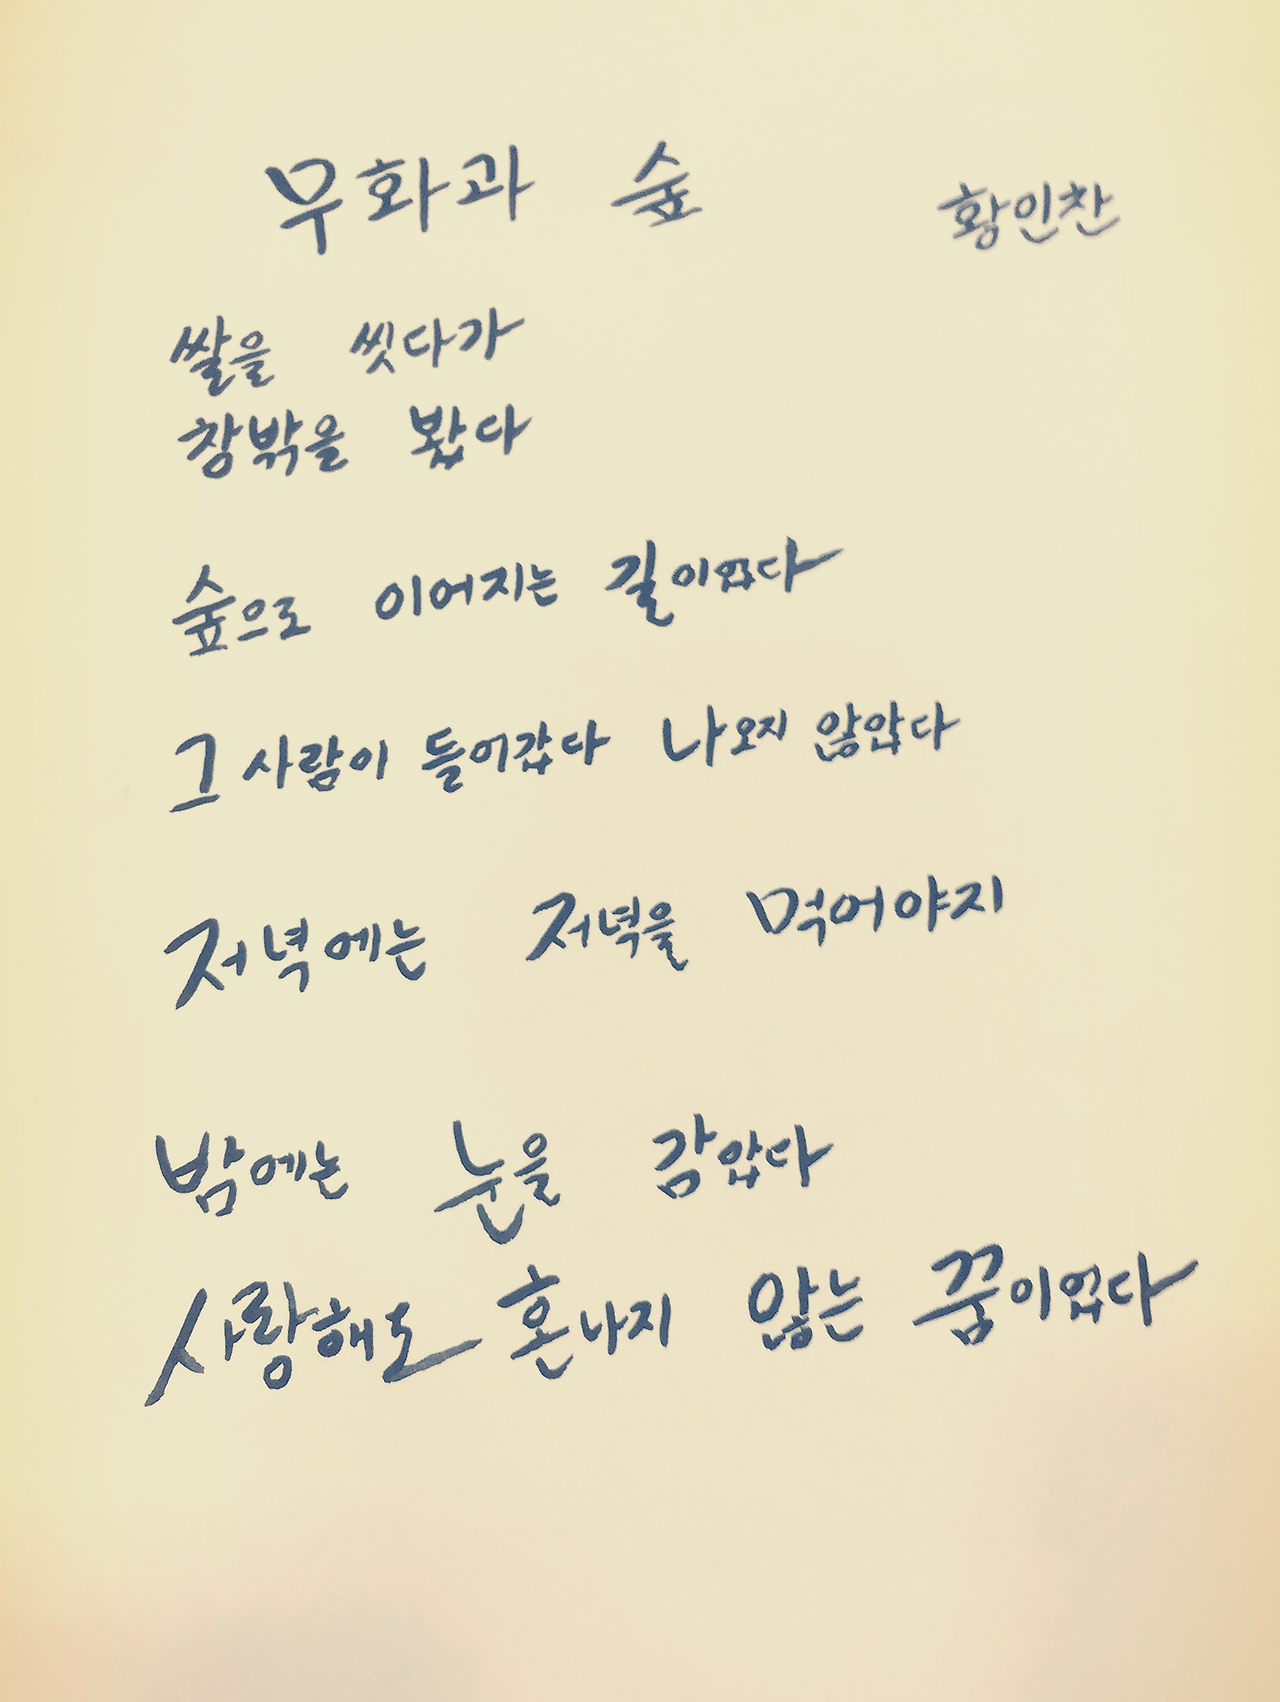 무화과 숲 황인찬
쌀을 씻다가
창밖을 봤다
숲으로 이어지는 길이었다
그 사람이 들어갔다 나오지 않았다
저녁에는 저녁을 먹어야지
밤에는 눈을 감았다
사랑해도 혼나지 않는 꿈이었다